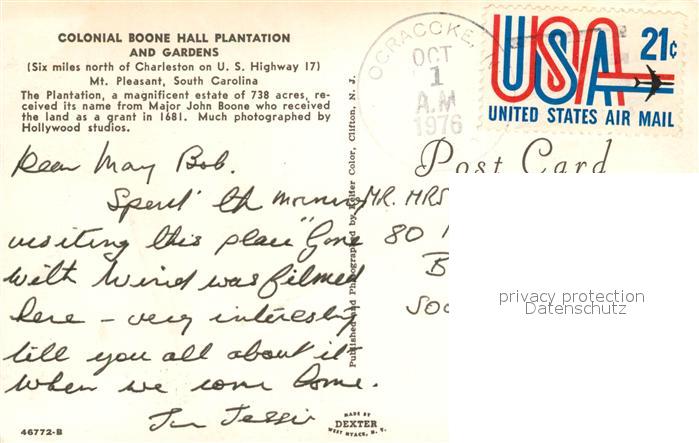 COLONIAL BOONE HALL PLANTATION
AND GARDENS
(Six miles north of Charleston on U. S. Highway 17)
Mt. Pleasant, South Carolina
The Plantation, a magnificent estate of 738 acres, re-
ceived its name from Major John Boone who received
the land as a grant in 1681. Much photographed by
Hollywood studios.
Dear May Bob.
Spent th morning
visiting this place "Gone
with Wind was filmed
here - very interesting
till you all about it
when we come home.
Jessie
46772-B
MADE BY
DEXTER
WEST NYACK, N. Y.
Published and Photographed by Keifer Color, Clifton, N. J.
OCRACOKE,
OCT
1
A.M
1976
USA 21¢
UNITED STATES AIR MAIL
Post Card
MR. MRS
80
B
SOU
privacy protection
Datenschutz